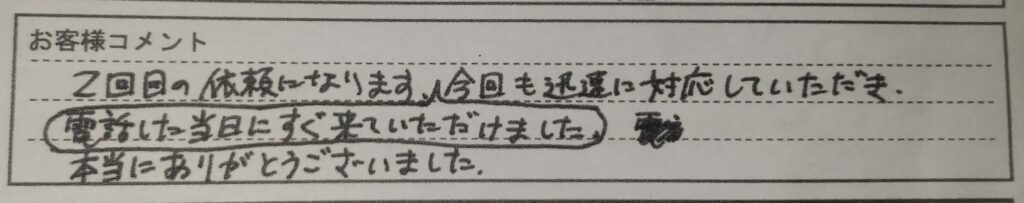 お客様コメント
2回目の依頼になります。今回も迅速に対応していただき、
電話した当日にすぐ来ていただけました。
本当にありがとうございました。